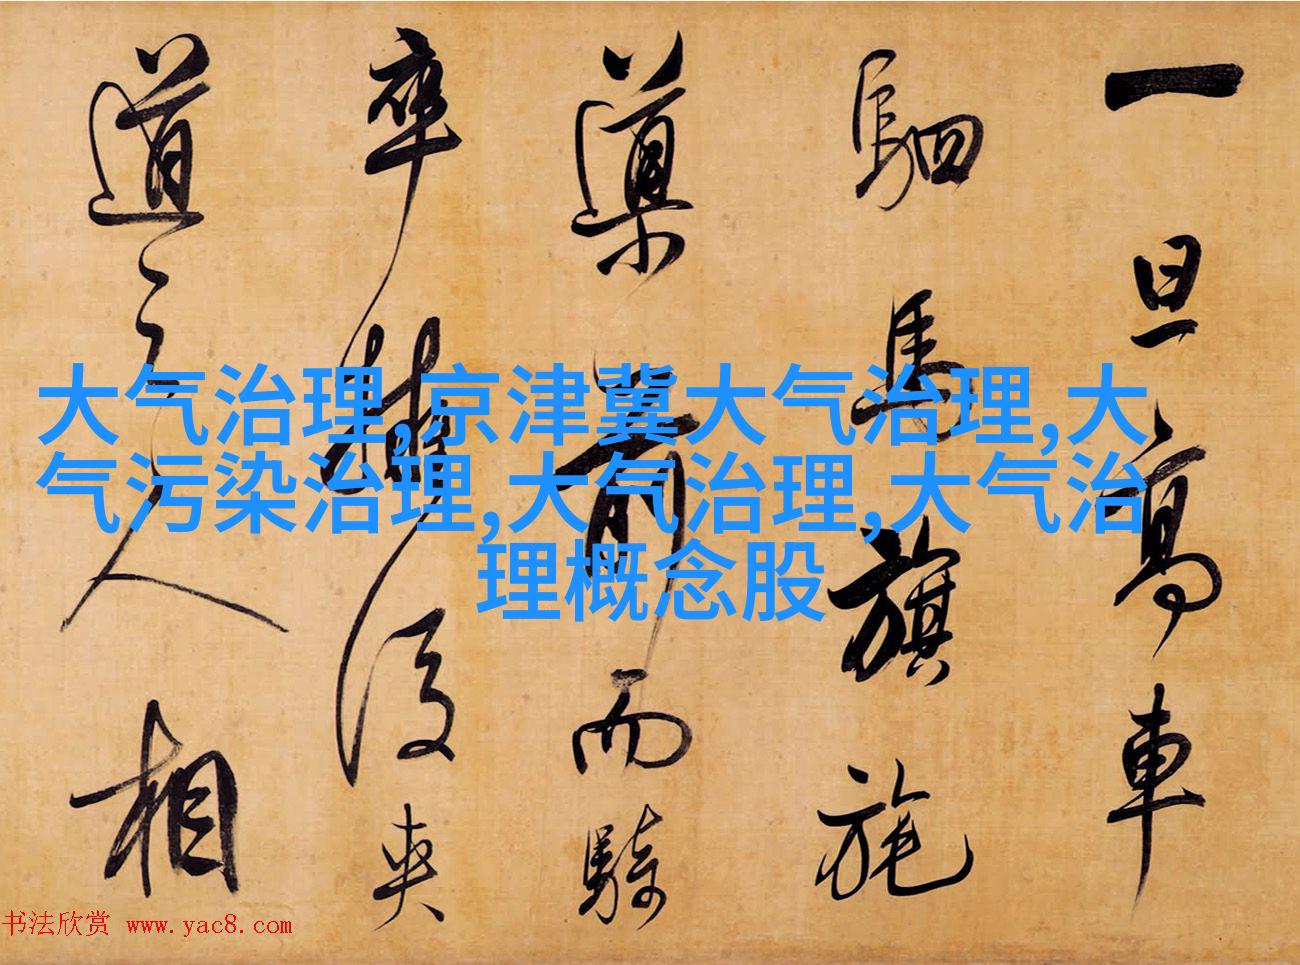 一旦高車
駟馬旗旄
導前而騎
卒擁後夾
道之人相
大气治理,京津冀大气治理,大
气污染治理,大气治理,大气治
理概念股
书法欣赏 www.yac8.com